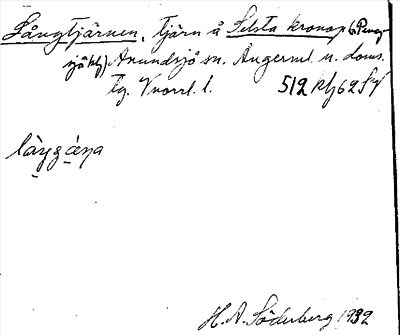 Långtjärnen, Tjärn å Selsta kronop (Peng
sjö hg) Anundsjö sn. Ångerml. n. doms.
tg. Vnorrl. l. 512
H. A. Söderberg 1932